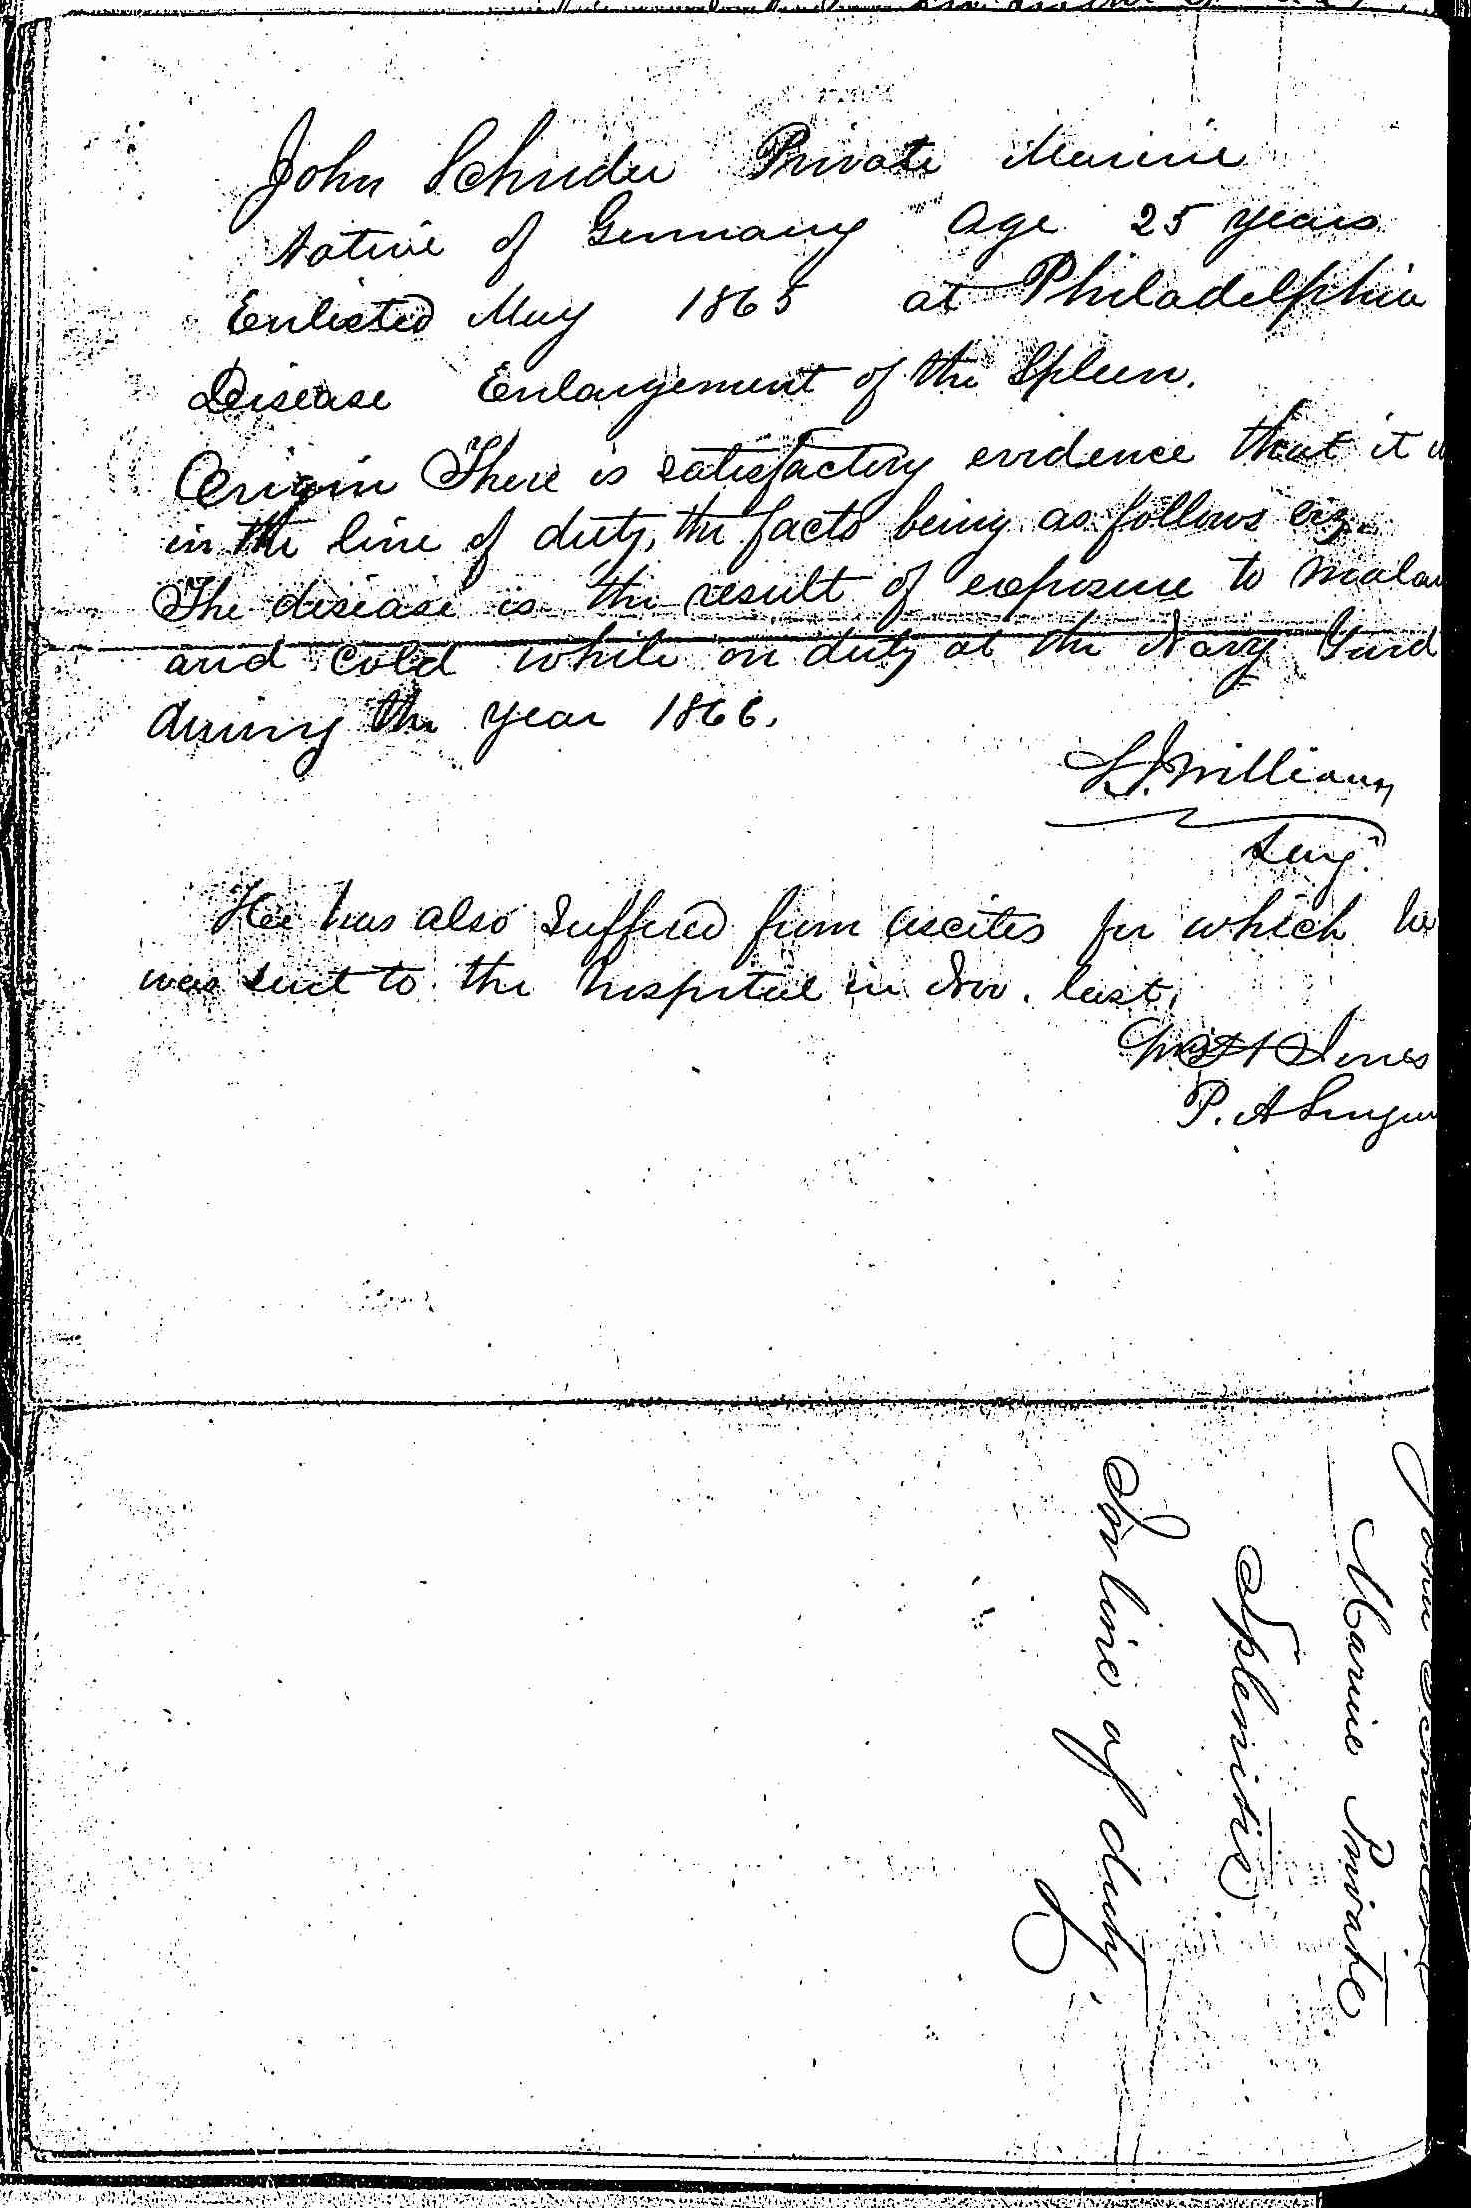 John Schrider Private Marine
Native of Germany Age 25 years
Enlisted May 1865 at Philadelphia
Disease Enlargement of the Spleen.
Origin There is satisfactory evidence that it
in the line of duty, the facts being as follows viz.
The disease is the result of exposure to
and cold while on duty at the Navy Yard
during the year 1866.
Williams
Surg.
He has also suffered from ascites for which he
was sent to the hospital in Nov. last.
Wm H Jones
P. A Surgeon
John
Marine Private
Splenitis
In line of duty.